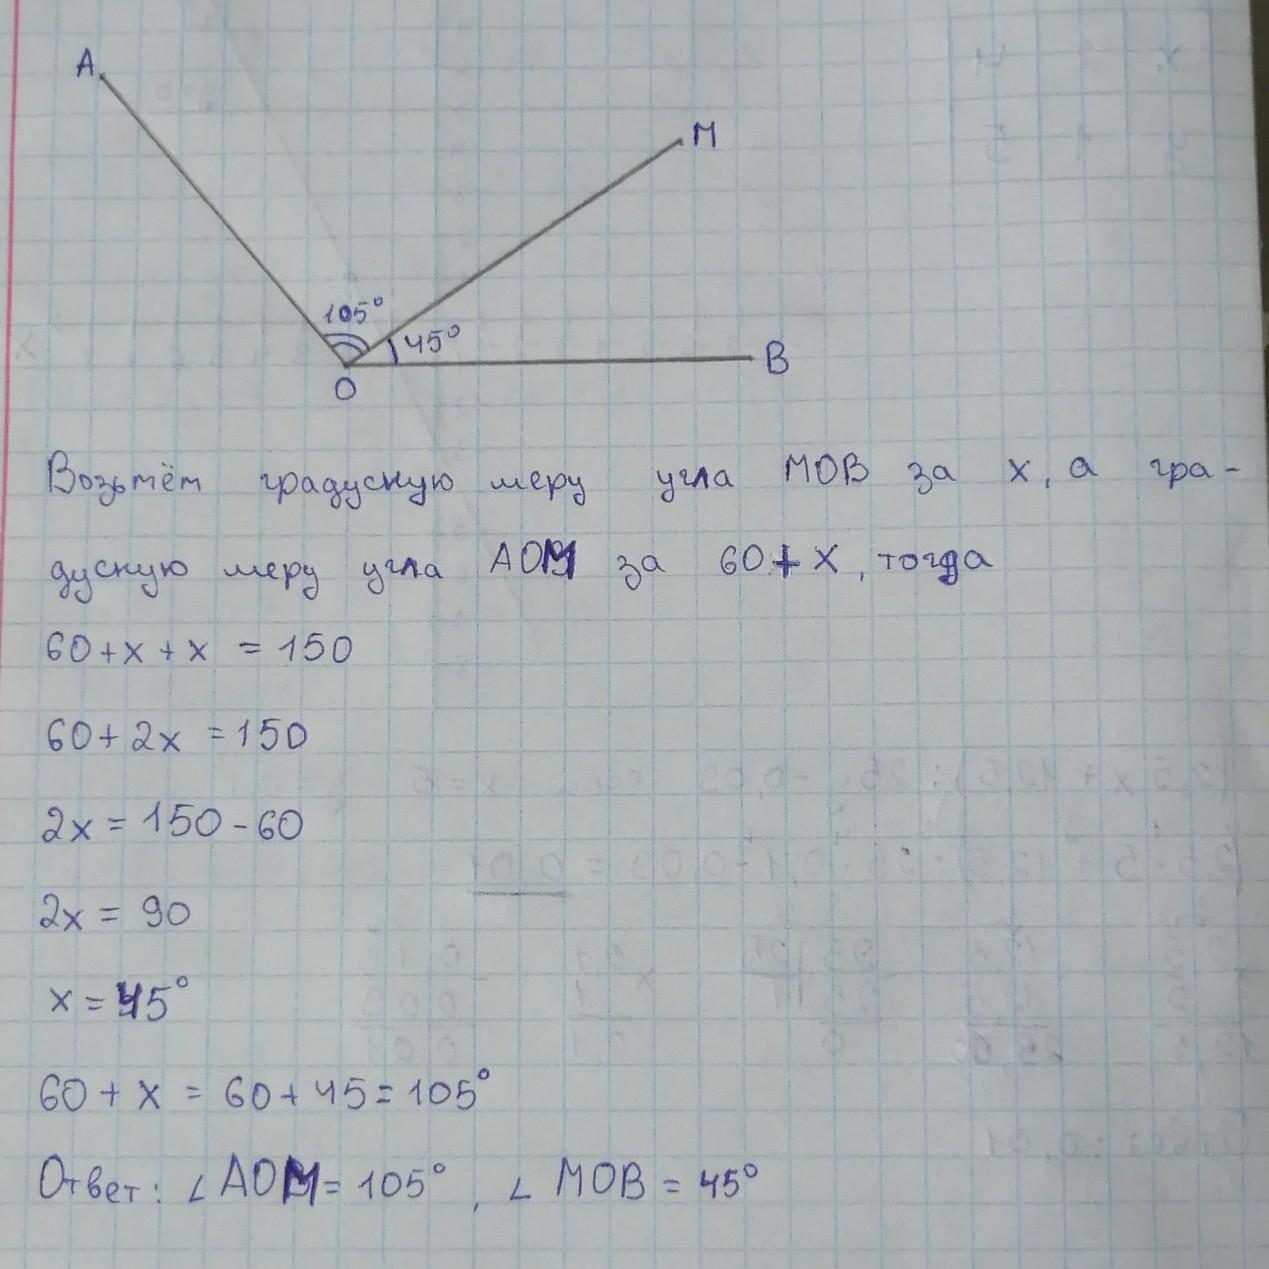 A
M
105°
45°
B
O
Возьмём градусную меру угла MOB за x, а гра-
дусную меру угла AOM за 60+x, тогда
60+x+x = 150
60+2x = 150
2x = 150-60
2x = 90
x = 45°
60 + x = 60+45 = 105°
Ответ: ∠ AOM = 105°, ∠ MOB = 45°